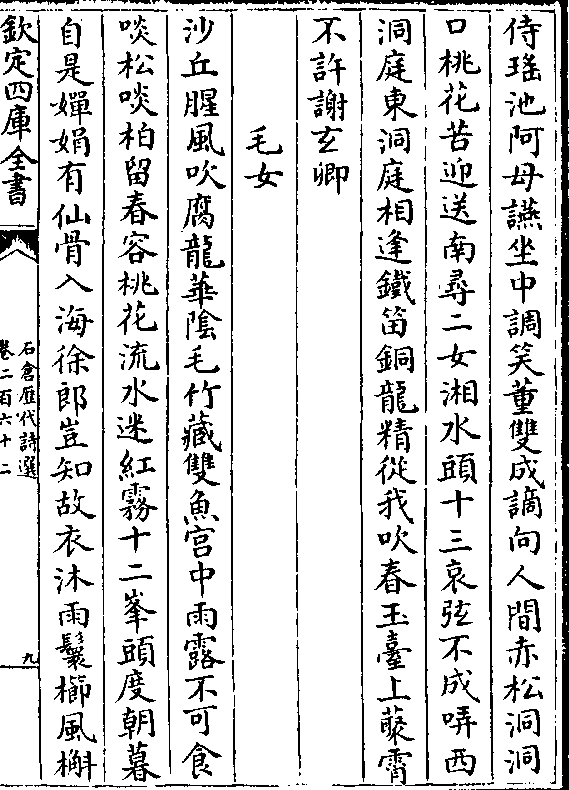 侍瑶池阿母讌坐中調笑董雙成謫向人間赤松洞洞
口桃花苦迎送南尋二女湘水頭十三哀弦不成哢西
洞庭東洞庭相逢鐵笛銅龍精從我吹春玉臺上藂霄
不許謝玄卿
毛女
沙丘腥風吹腐龍華陰毛竹藏雙魚宫中雨露不可食
啖松啖柏留春容桃花流水迷紅霧十二峯頭度朝暮
自是嬋娟有仙骨入海徐郎豈知故衣沐雨鬟櫛風槲
欽定四庫全書
石倉歷代詩選
卷二百六十二
九